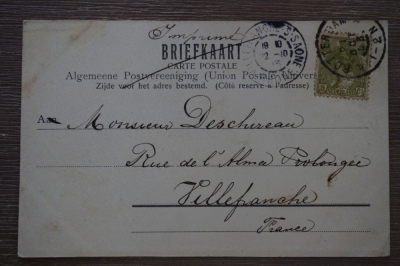 Imprimé
BRIEFKAART
CARTE POSTALE
Algemeene Postvereeniging (Union Postale Universelle)
Zijde voor het adres bestemd. (Côté réservé à l'adresse)
Aan Monsieur Deschereau
Rue de l'Alma Prolongée
Villefranche
France